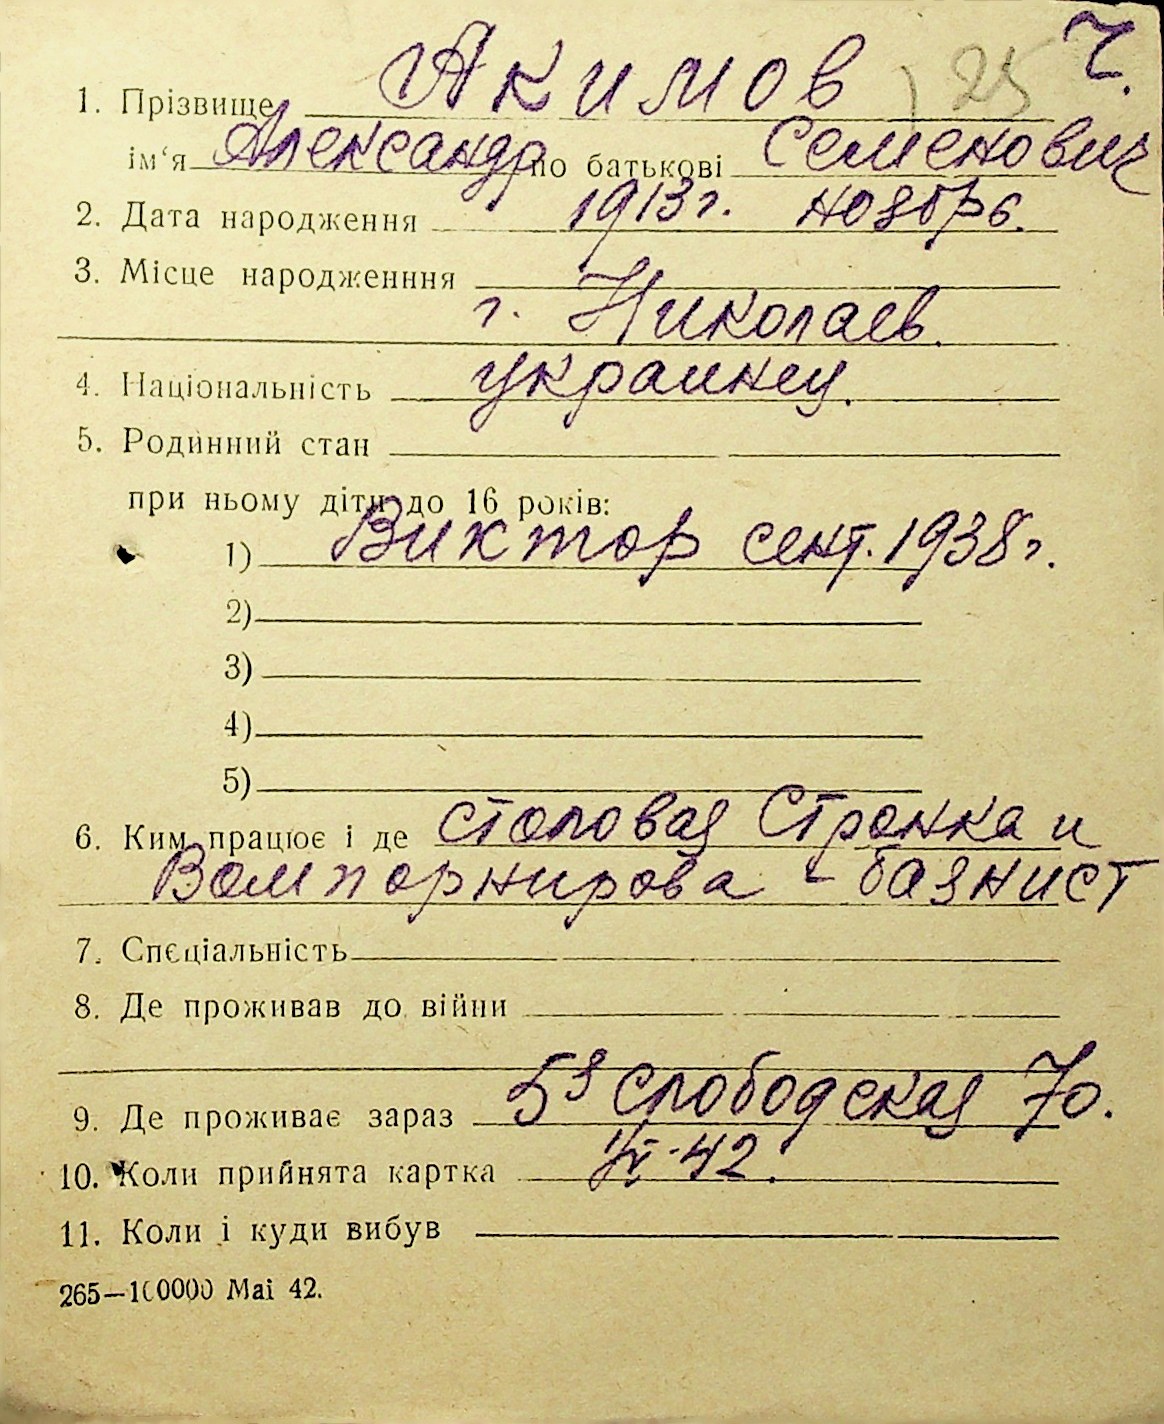 ч.
1. Прізвище Акимов 25
ім‘я Александр по батькові Семенович
2. Дата народження 1913 г. ноябрь.
3. Місце народженння
г. Николаев.
4. Національність украинец.
5. Родинний стан
при ньому діти до 16 років:
1) Виктор сент. 1938 г.
2)
3)
4)
5)
6. Ким працює і де столовая Стронка и
Вомпорнирова - баянист
7. Спеціальність
8. Де проживав до війни
9. Де проживає зараз 5я Слободская 70.
10. Коли прийнята картка
11. Коли і куди вибув
265—100000 Mai 42.